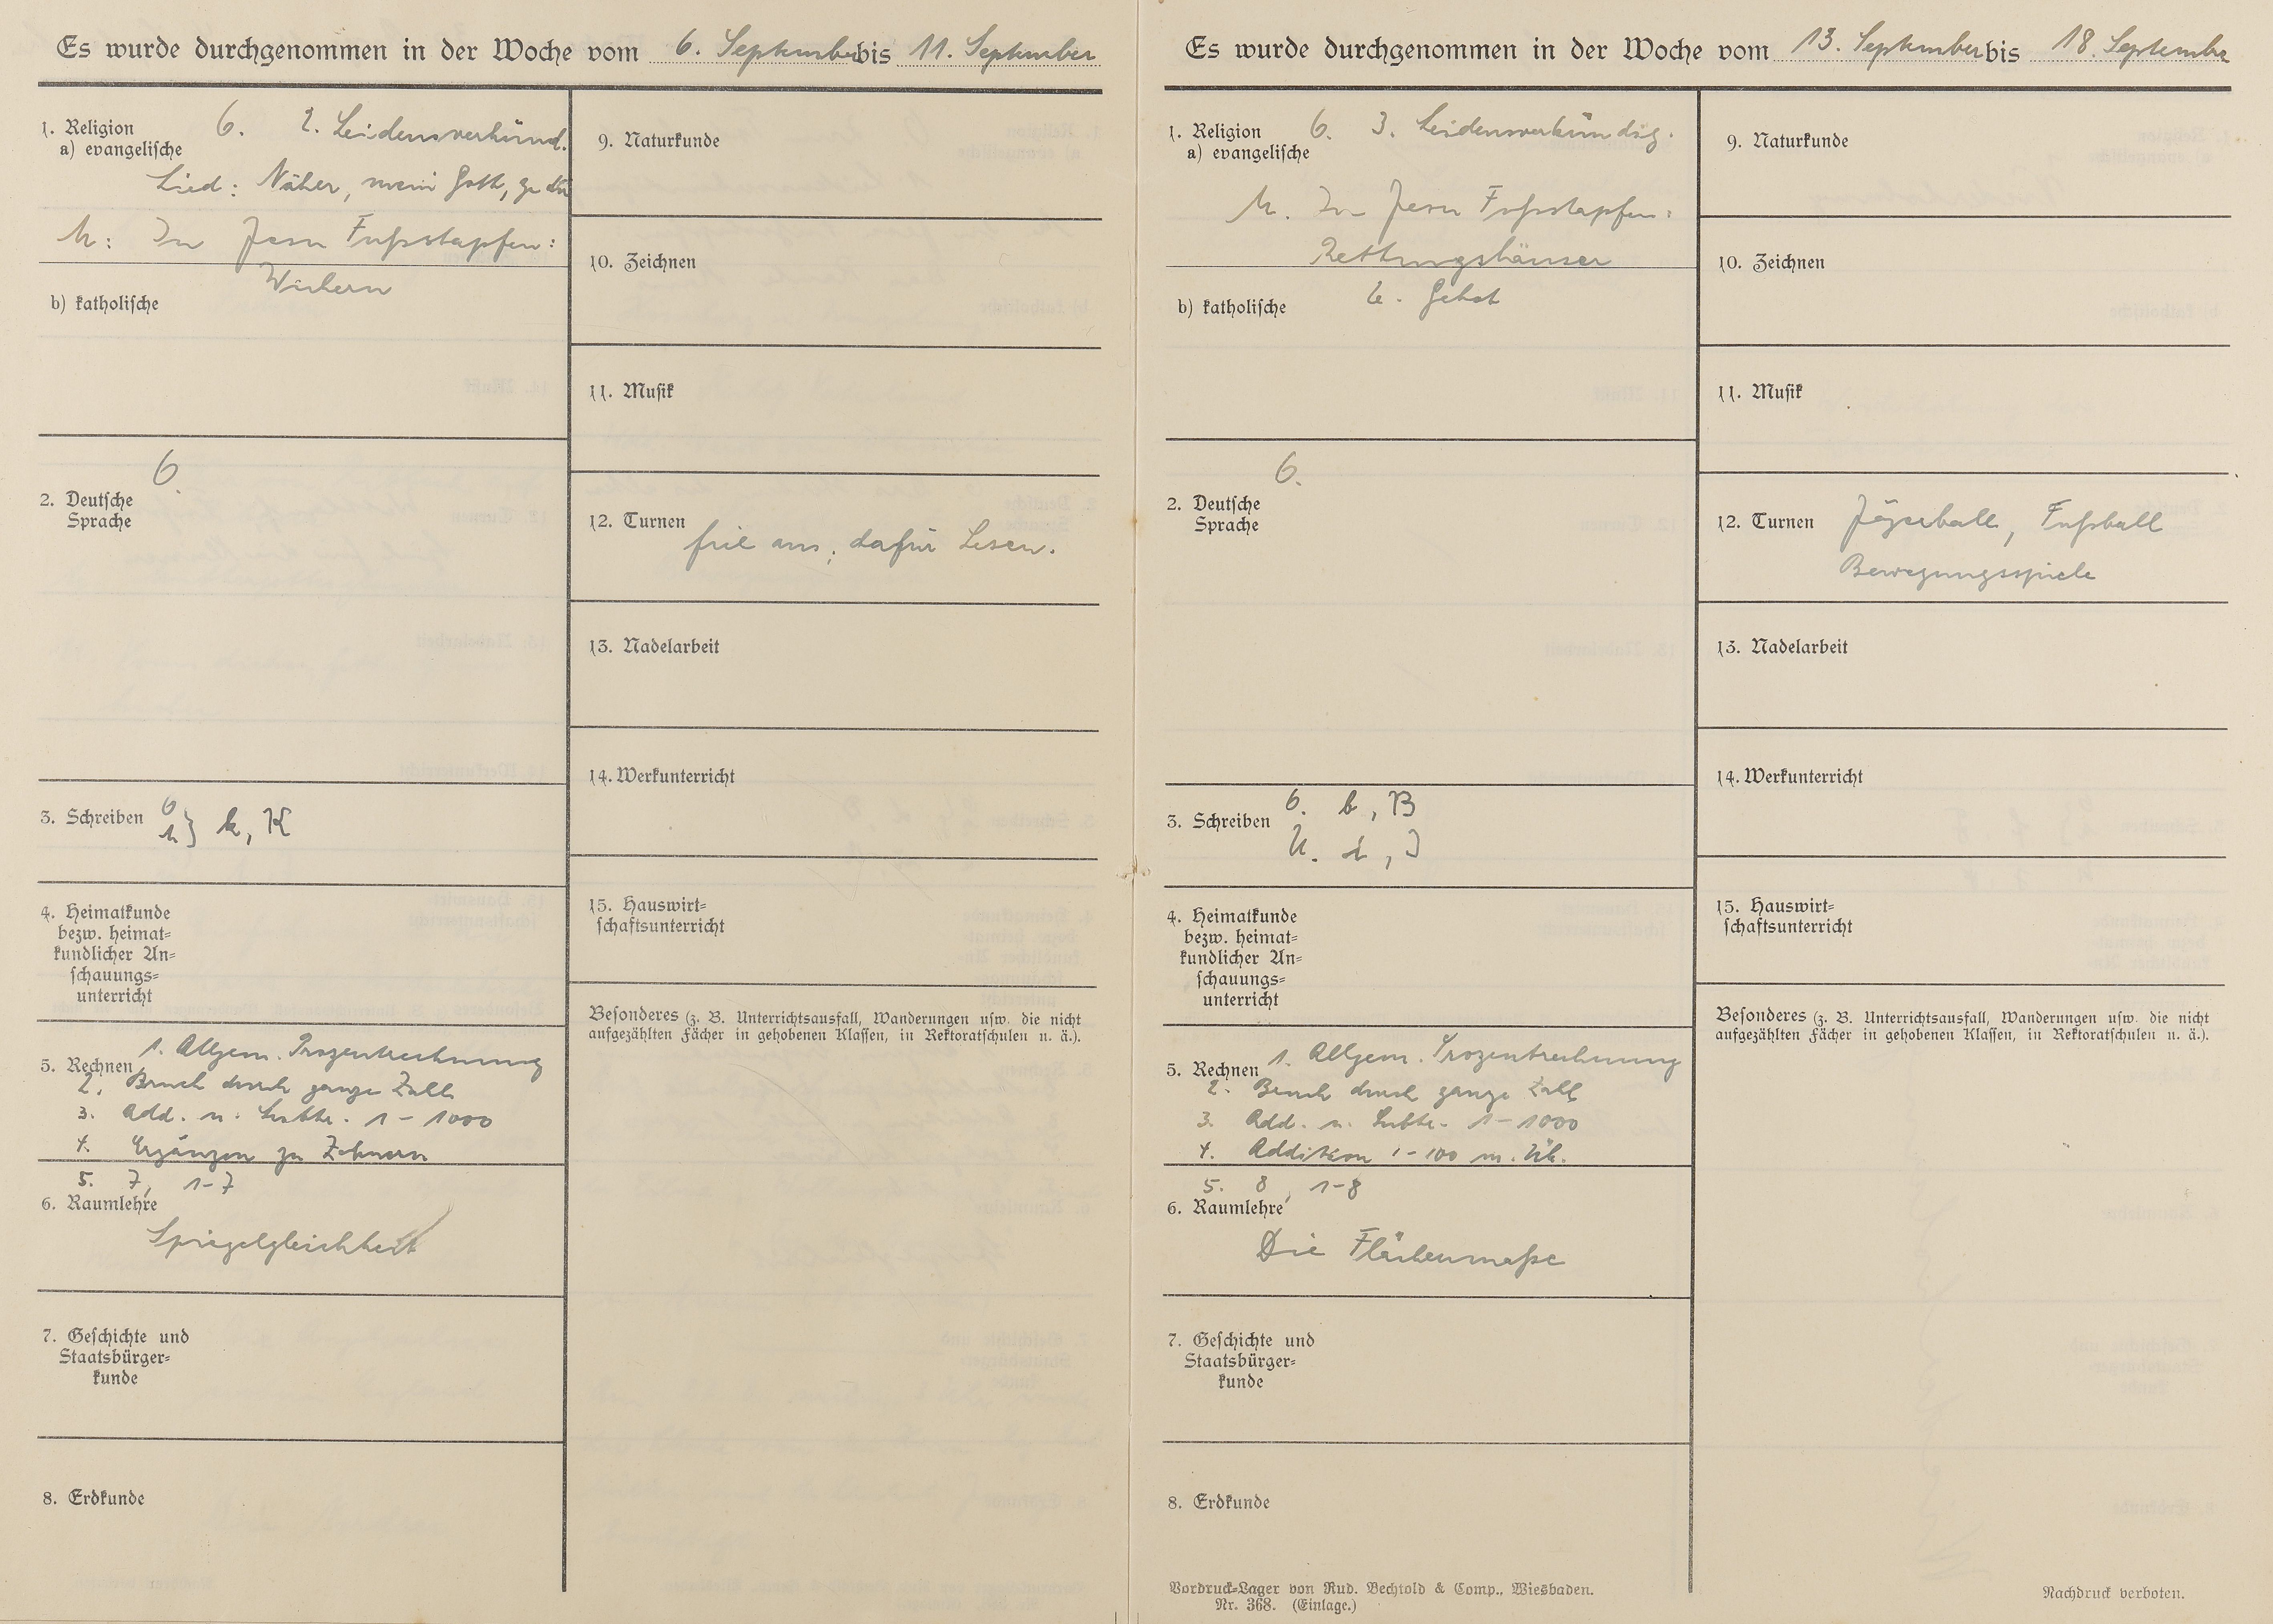 Es wurde durchgenommen in der Woche vom 6. September bis 11. September
1. Religion 6. 2. Leidensverkünd.
a) evangelische
Lied: Näher, mein Gott, zu dir
M: In Jesu Fußstapfen:
Wichern
b) katholische
6.
2. Deutsche
Sprache
3. Schreiben 6 } k, K
4. Heimatkunde
bezw. heimat=
kundlicher An=
schauungs=
unterricht
1. Allgem. Prozentrechnung
5. Rechnen
2. Bruch durch ganze Zahl
3. Add. u. Subtr. 1 - 1000
4. Ergänzen zu Zehnern
5. 7, 1-7
6. Raumlehre
Spiegelgleichheit
7. Geschichte und
Staatsbürger=
kunde
8. Erdkunde
9. Naturkunde
10. Zeichnen
11. Musik
12. Turnen
fiel aus; dafür Lesen.
13. Nadelarbeit
14. Werkunterricht
15. Hauswirt=
schaftsunterricht
Besonderes (z. B. Unterrichtsausfall, Wanderungen usw. die nicht
aufgezählten Fächer in gehobenen Klassen, in Rektoratschulen u. ä.).
Es wurde durchgenommen in der Woche vom 13. September bis 18. September
1. Religion 6. 3. Leidensverkündig.
a) evangelische
M. In Jesu Fußstapfen:
Rettungshäuser
b) katholische Gebot
6.
2. Deutsche
Sprache
3. Schreiben 6. b, B
U. i, J
4. Heimatkunde
bezw. heimat=
kundlicher An=
schauungs=
unterricht
1. Allgem. Prozentrechnung
5. Rechnen
2. Bruch durch ganze Zahl
3. Add. u. Subtr. 1-1000
4. Addition 1-100 m. Ük.
5. 8, 1-8
6. Raumlehre
Die Flächenmaße
7. Geschichte und
Staatsbürger=
kunde
8. Erdkunde
Vordruck=Lager von Rud. Bechtold & Comp., Wiesbaden.
Nr. 368. (Einlage.)
9. Naturkunde
10. Zeichnen
11. Musik
12. Turnen Jägerball, Fußball
Bewegungsspiele
13. Nadelarbeit
14. Werkunterricht
15. Hauswirt=
schaftsunterricht
Besonderes (z. B. Unterrichtsausfall, Wanderungen usw. die nicht
aufgezählten Fächer in gehobenen Klassen, in Rektoratschulen u. ä.).
Nachdruck verboten.